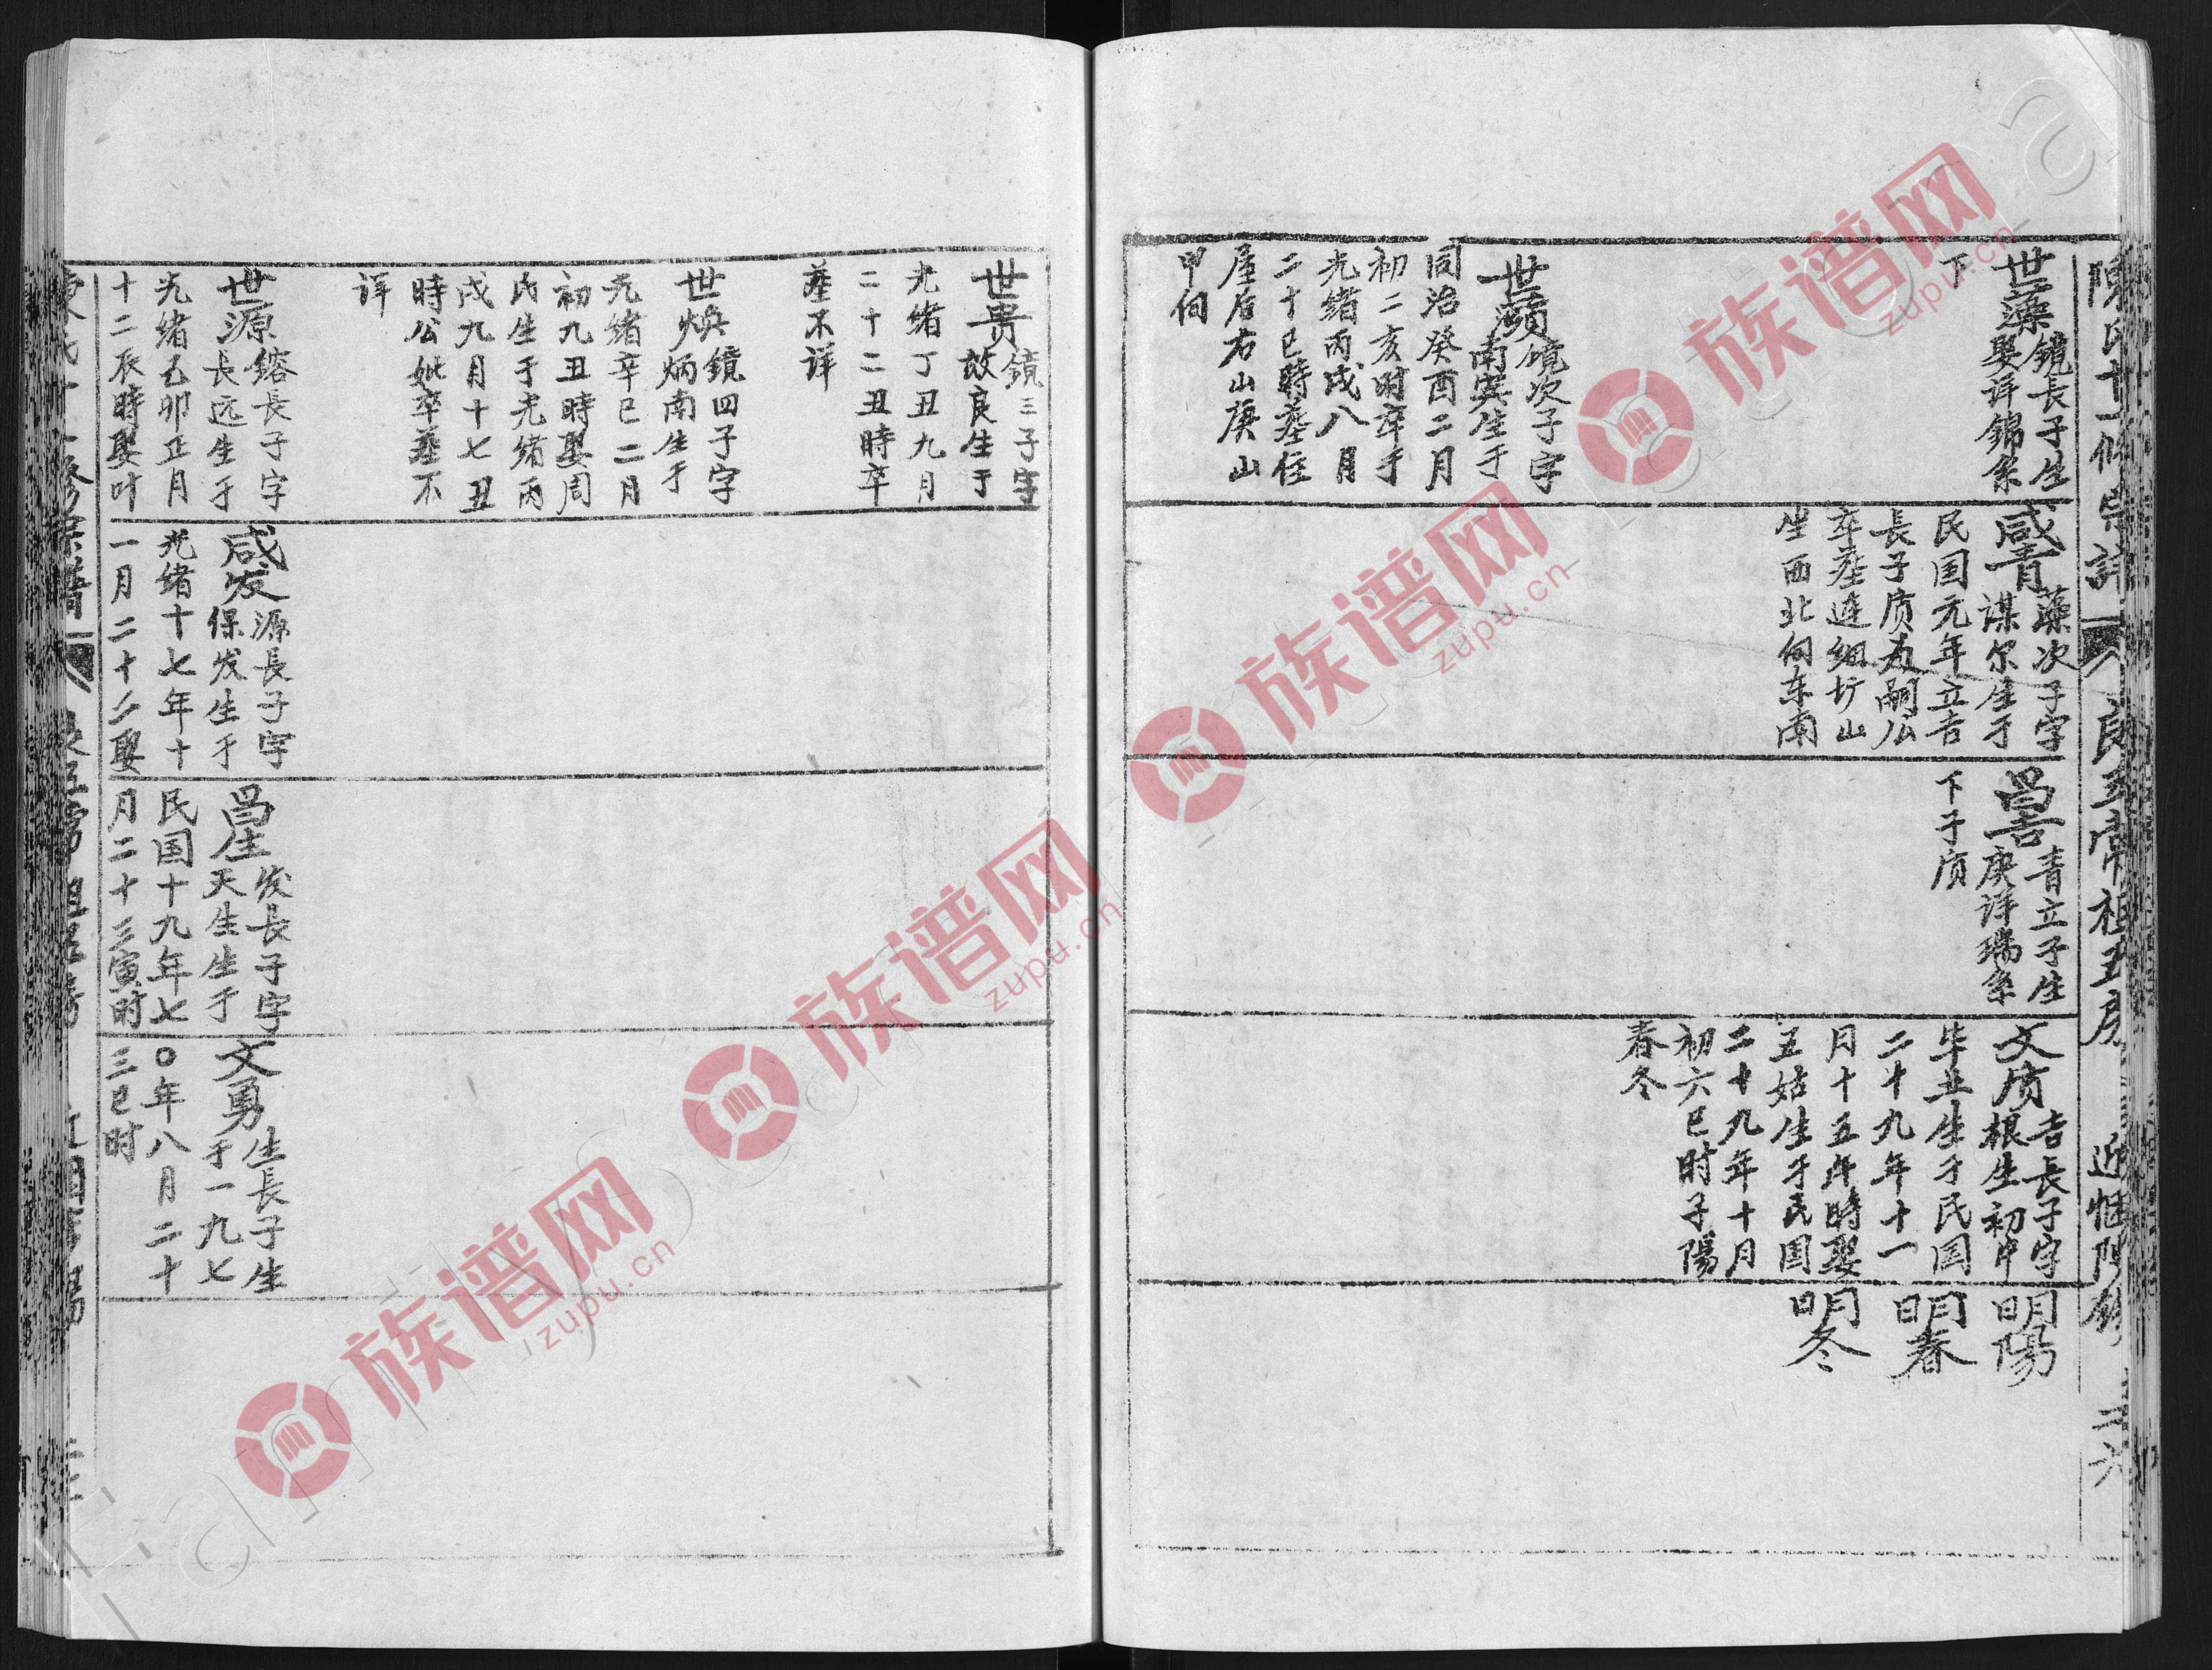 陳氏十一修宗譜
良五常祖五房
二六
世藻鏡長子生
娶详錦系
下
世瓚鏡次子字
南宾生于
同治癸酉二月
初二亥时卒于
光緒丙戌八月
二十巳時塟住
屋后右山庚山
甲向
咸青藻次子字
谋尔生于
民国元年立吉
長子质为嗣公
卒塟连细圹山
坐西北向东南
昌吉青立子生
庚详瑞系
下子质
文质吉長子字
根生初中
毕业生于民国
二十九年十一
月十五午時娶
王姑生于民国
二十九年十月
初六巳时子陽
春冬
明陽
明春
明冬
世贵鏡三子字
故良生于
光绪丁丑九月
二十二丑時卒
塟不详
世焕鏡四子字
炳南生于
光绪辛巳二月
初九丑時娶周
氏生于光绪丙
戌九月十七丑
時公妣卒塟不
详
世源鎔長子字
長远生于
光绪乙卯正月
十二辰時娶叶
咸发源長子字
保发生于
光绪十七年十
一月二十二娶
昌生发長子字
天生生于
民国十九年七
月二十三寅时
文勇生長子生
于一九七
〇年八月二十
三巳时
族谱网
zupu.cn
族谱网
zupu.cn
族谱网
zupu.cn
族谱网
zupu.cn
族谱网
zupu.cn